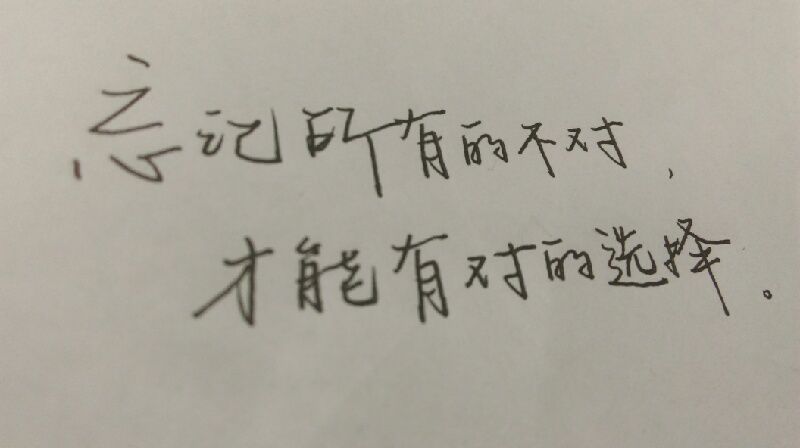 忘记所有的不对,
才能有对的选择。